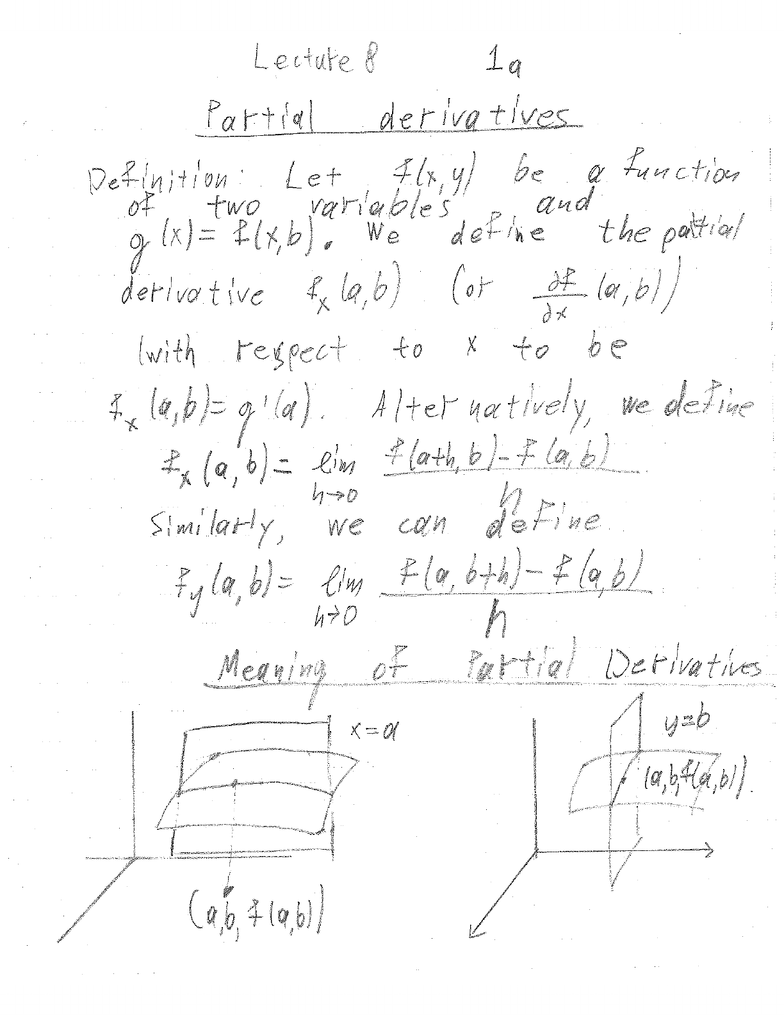 Lecture 8 1a
Partial derivatives
Definition: Let f(x,y) be a function
of two variables and
g(x)=f(x,b). We define the partial
derivative f_x(a,b) (or ∂f/∂x (a,b))
(with respect to x to be
f_x(a,b)=g'(a). Alternatively, we define
f_x(a,b)= lim h→0 (f(a+h,b)-f(a,b))/h
Similarly, we can define
f_y(a,b)= lim h→0 (f(a,b+h)-f(a,b))/h
Meaning of Partial Derivatives
x=a
y=b
(a,b,f(a,b)).
(a,b,f(a,b))